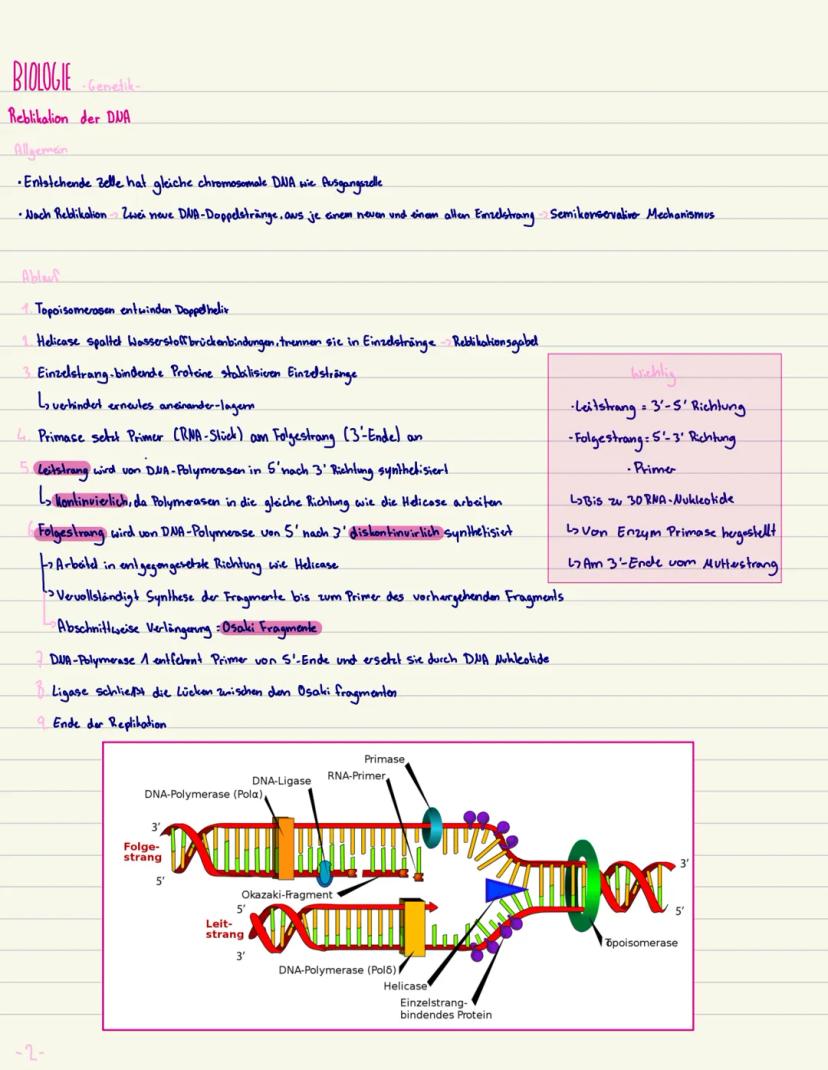 BIOLOGIE -Genetik-
Reblikation der DNA
Allgemein
• Entstehende Zelle hat gleiche chromosomale DNA wie Ausgangszelle
• Nach Reblikation → Zwei neue DNA-Doppelstränge, aus je einem neuen und einem alten Einzelstrang → Semikonservativer Mechanismus
Ablauf
1. Topoisomerasen entwinden Doppelhelix
2. Helicase spaltet Wasserstoffbrückenbindungen, trennen sie in Einzelstränge → Reblikationsgabel
3. Einzelstrang-bindende Proteine stabilisieren Einzelstränge
↳ verhindert erneutes aneinander-lagern
4. Primase setzt Primer (RNA-Stück) am Folgestrang (3'-Ende) an
5. Leitstrang wird von DNA-Polymerasen in 5' nach 3' Richtung synthetisiert
↳ kontinuierlich, da Polymerasen in die gleiche Richtung wie die Helicase arbeiten
6. Folgestrang wird von DNA-Polymerase von 5' nach 3' diskontinuirlich synthetisiert
↳ Arbeitet in entgegengesetzte Richtung wie Helicase
↳ Vervollständigt Synthese der Fragmente bis zum Primer des vorhergehenden Fragments
↳ Abschnittweise Verlängerung = Osaki Fragmente
7. DNA-Polymerase 1 entfernt Primer von 5'-Ende und ersetzt sie durch DNA Nukleotide
8. Ligase schließt die Lücken zwischen den Osaki fragmenten
9. Ende der Replikation
Wichtig
• Leitstrang = 3'-5' Richtung
• Folgestrang = 5'-3' Richtung
• Primer
↳ Bis zu 30 RNA-Nukleotide
↳ Von Enzym Primase hergestellt
↳ Am 3'-Ende vom Mutterstrang
Primase
RNA-Primer
DNA-Ligase
DNA-Polymerase (Polα)
3'
Folge-
strang
5'
Okazaki-Fragment
5'
Leit-
strang
3'
DNA-Polymerase (Polδ)
Helicase
Einzelstrang-
bindendes Protein
3'
5'
Topoisomerase
-2-